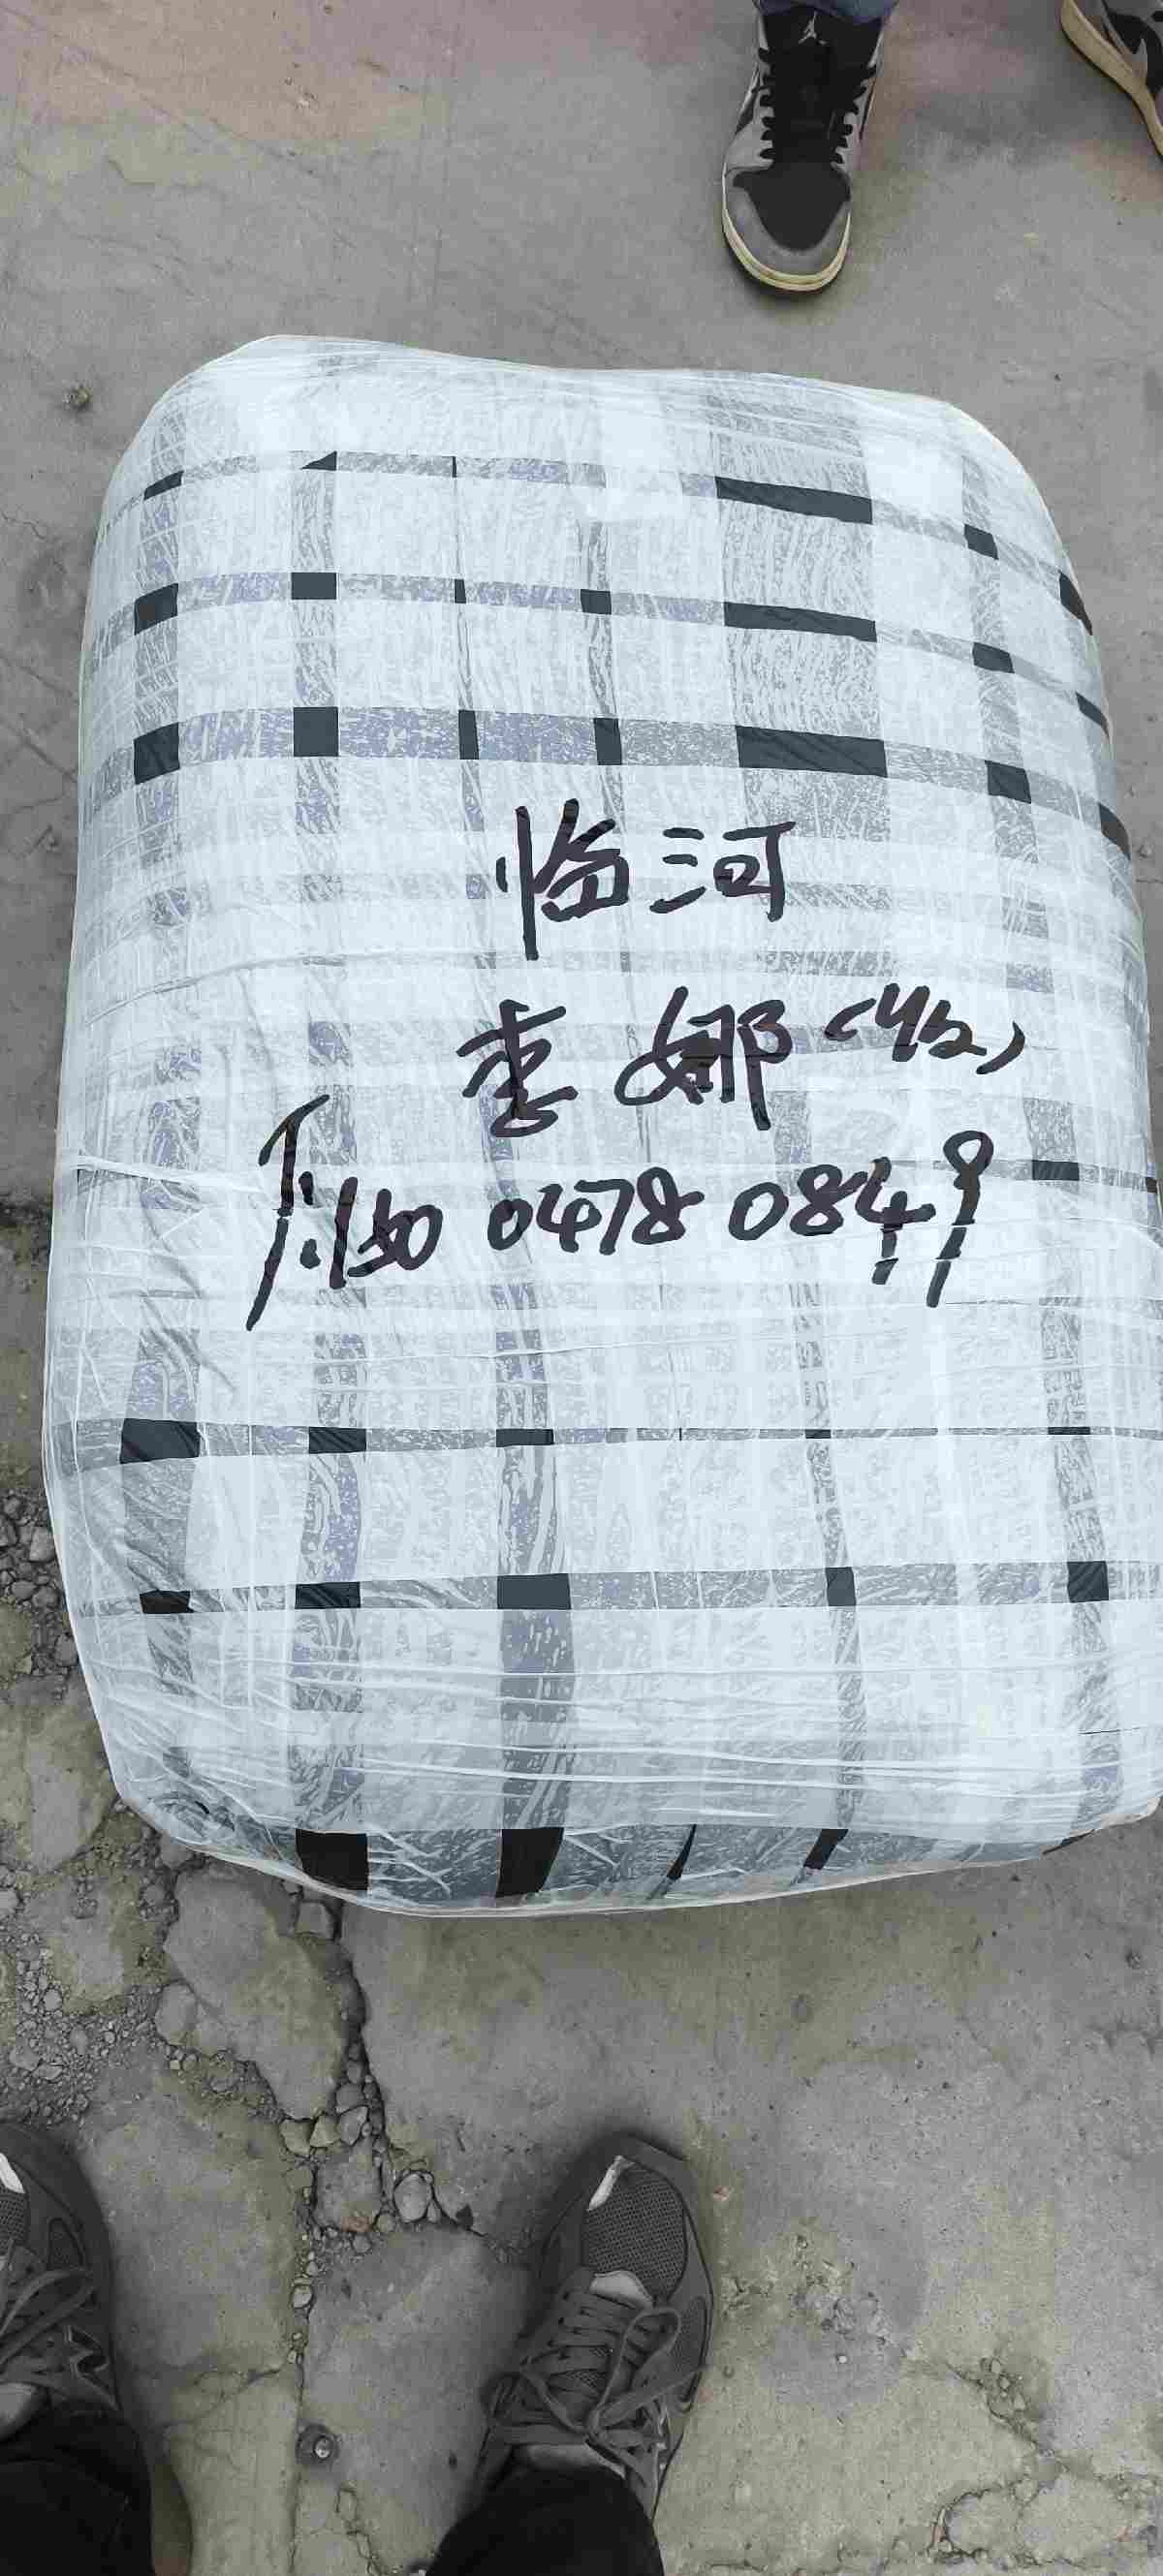 临河
李娜(4包)
T:150 0478 0849